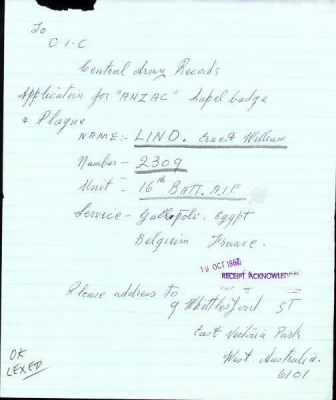 To
O I C
Central Army Records
Application for "ANZAC" Lapel badge
& Plaque
NAME:- LIND. Ernest William
Number - 2309
Unit = 16th BATT. A.I.F
Service - Gallipoli. Egypt
Belgium France.
19 OCT 1967
RECEIPT ACKNOWLEDGED
Please address to
9 Whittlesford ST
East Victoria Park
West Australia.
6101
OK
LEXED